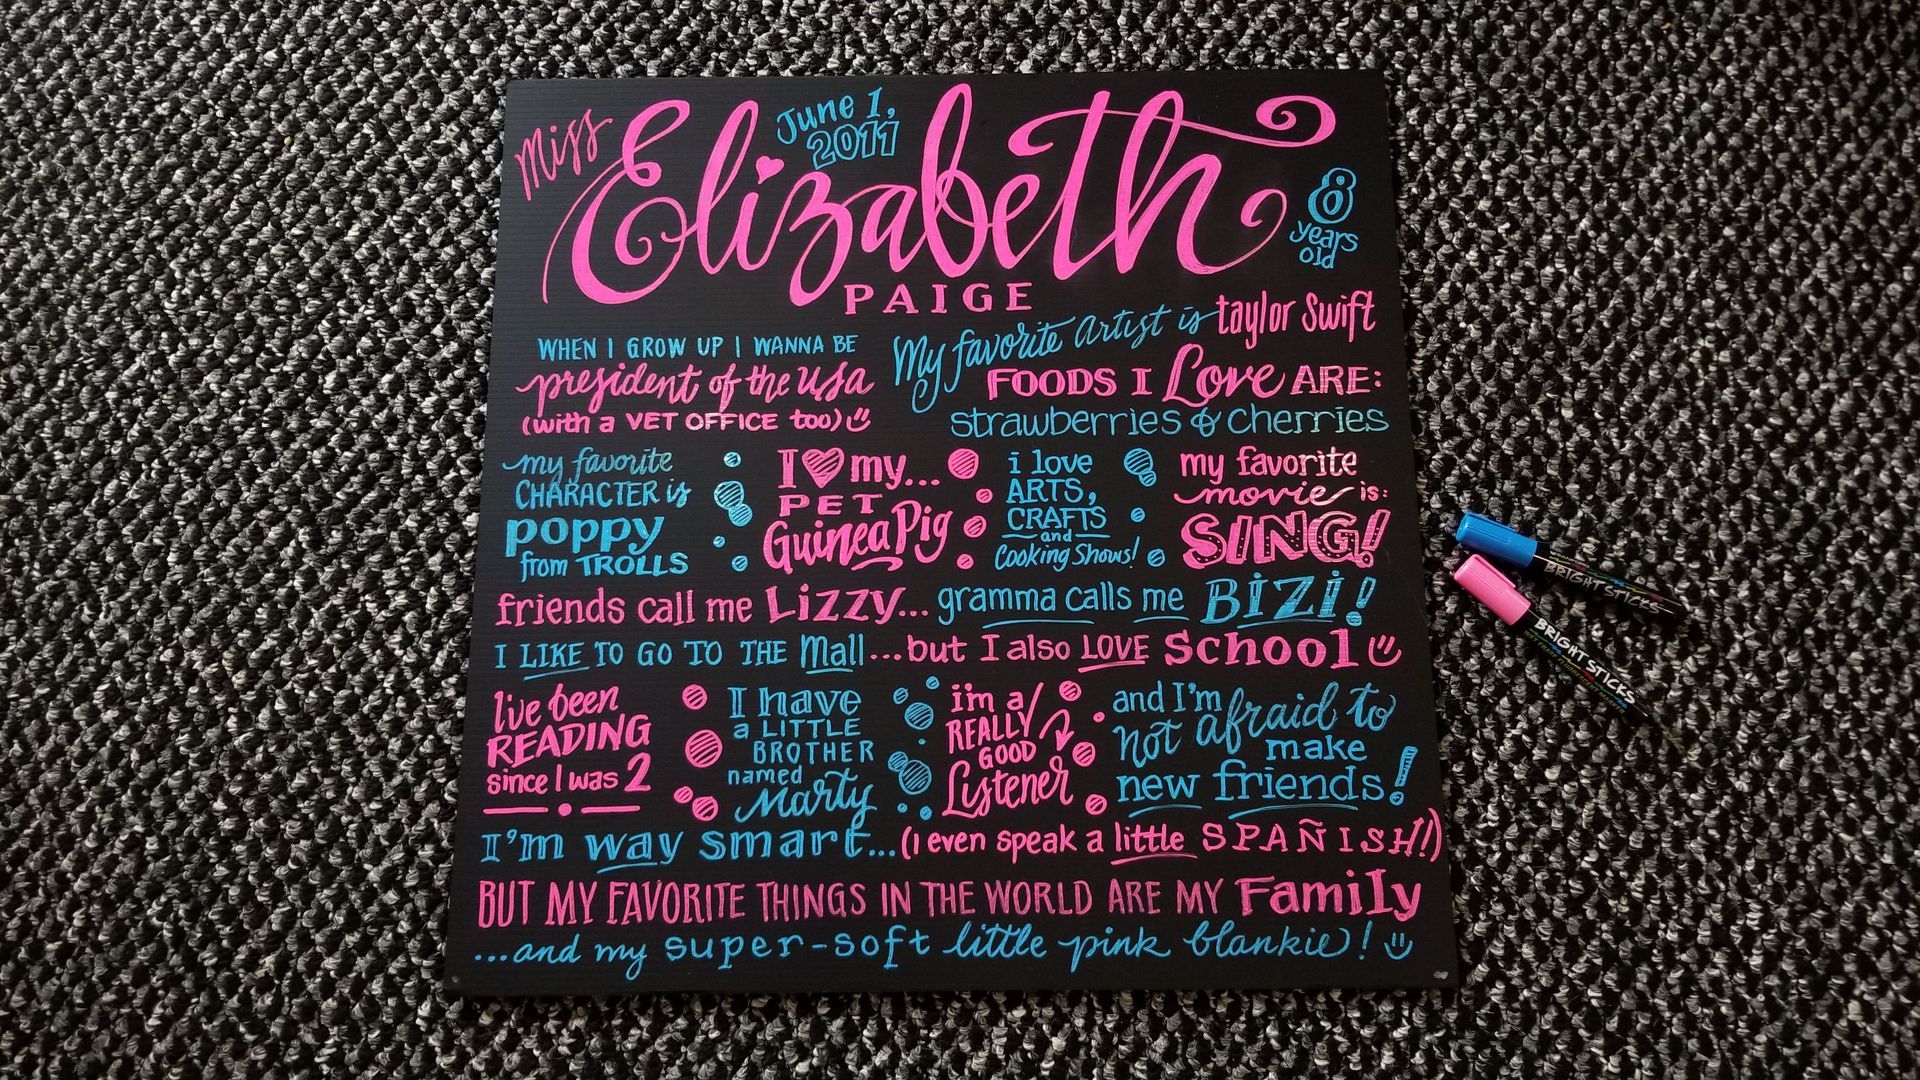 Miss Elizabeth
June 1,
2011
8
years
old
PAIGE
WHEN I GROW UP I WANNA BE
president of the USA
(with a VET OFFICE too)
My favorite artist is taylor Swift
FOODS I Love ARE:
strawberries & cherries
my favorite
CHARACTER is
poppy
from TROLLS
I ♥ my...
PET
Guinea Pig
i love
ARTS,
CRAFTS
and
Cooking Shows!
my favorite
movie is:
SING!
friends call me Lizzy... gramma calls me BIZI!
I LIKE TO GO TO THE Mall ...but I also LOVE School
I've been
READING
since I was 2
I have
a LITTLE
BROTHER
named
Marty
i'm a
REALLY
GOOD
Listener
and I'm
not afraid to
make
new friends!
I'm way smart... (i even speak a little SPAÑISH!)
BUT MY FAVORITE THINGS IN THE WORLD ARE MY Family
...and my super-soft little pink blankie!
BRIGHT STICKS
BRIGHT STICKS